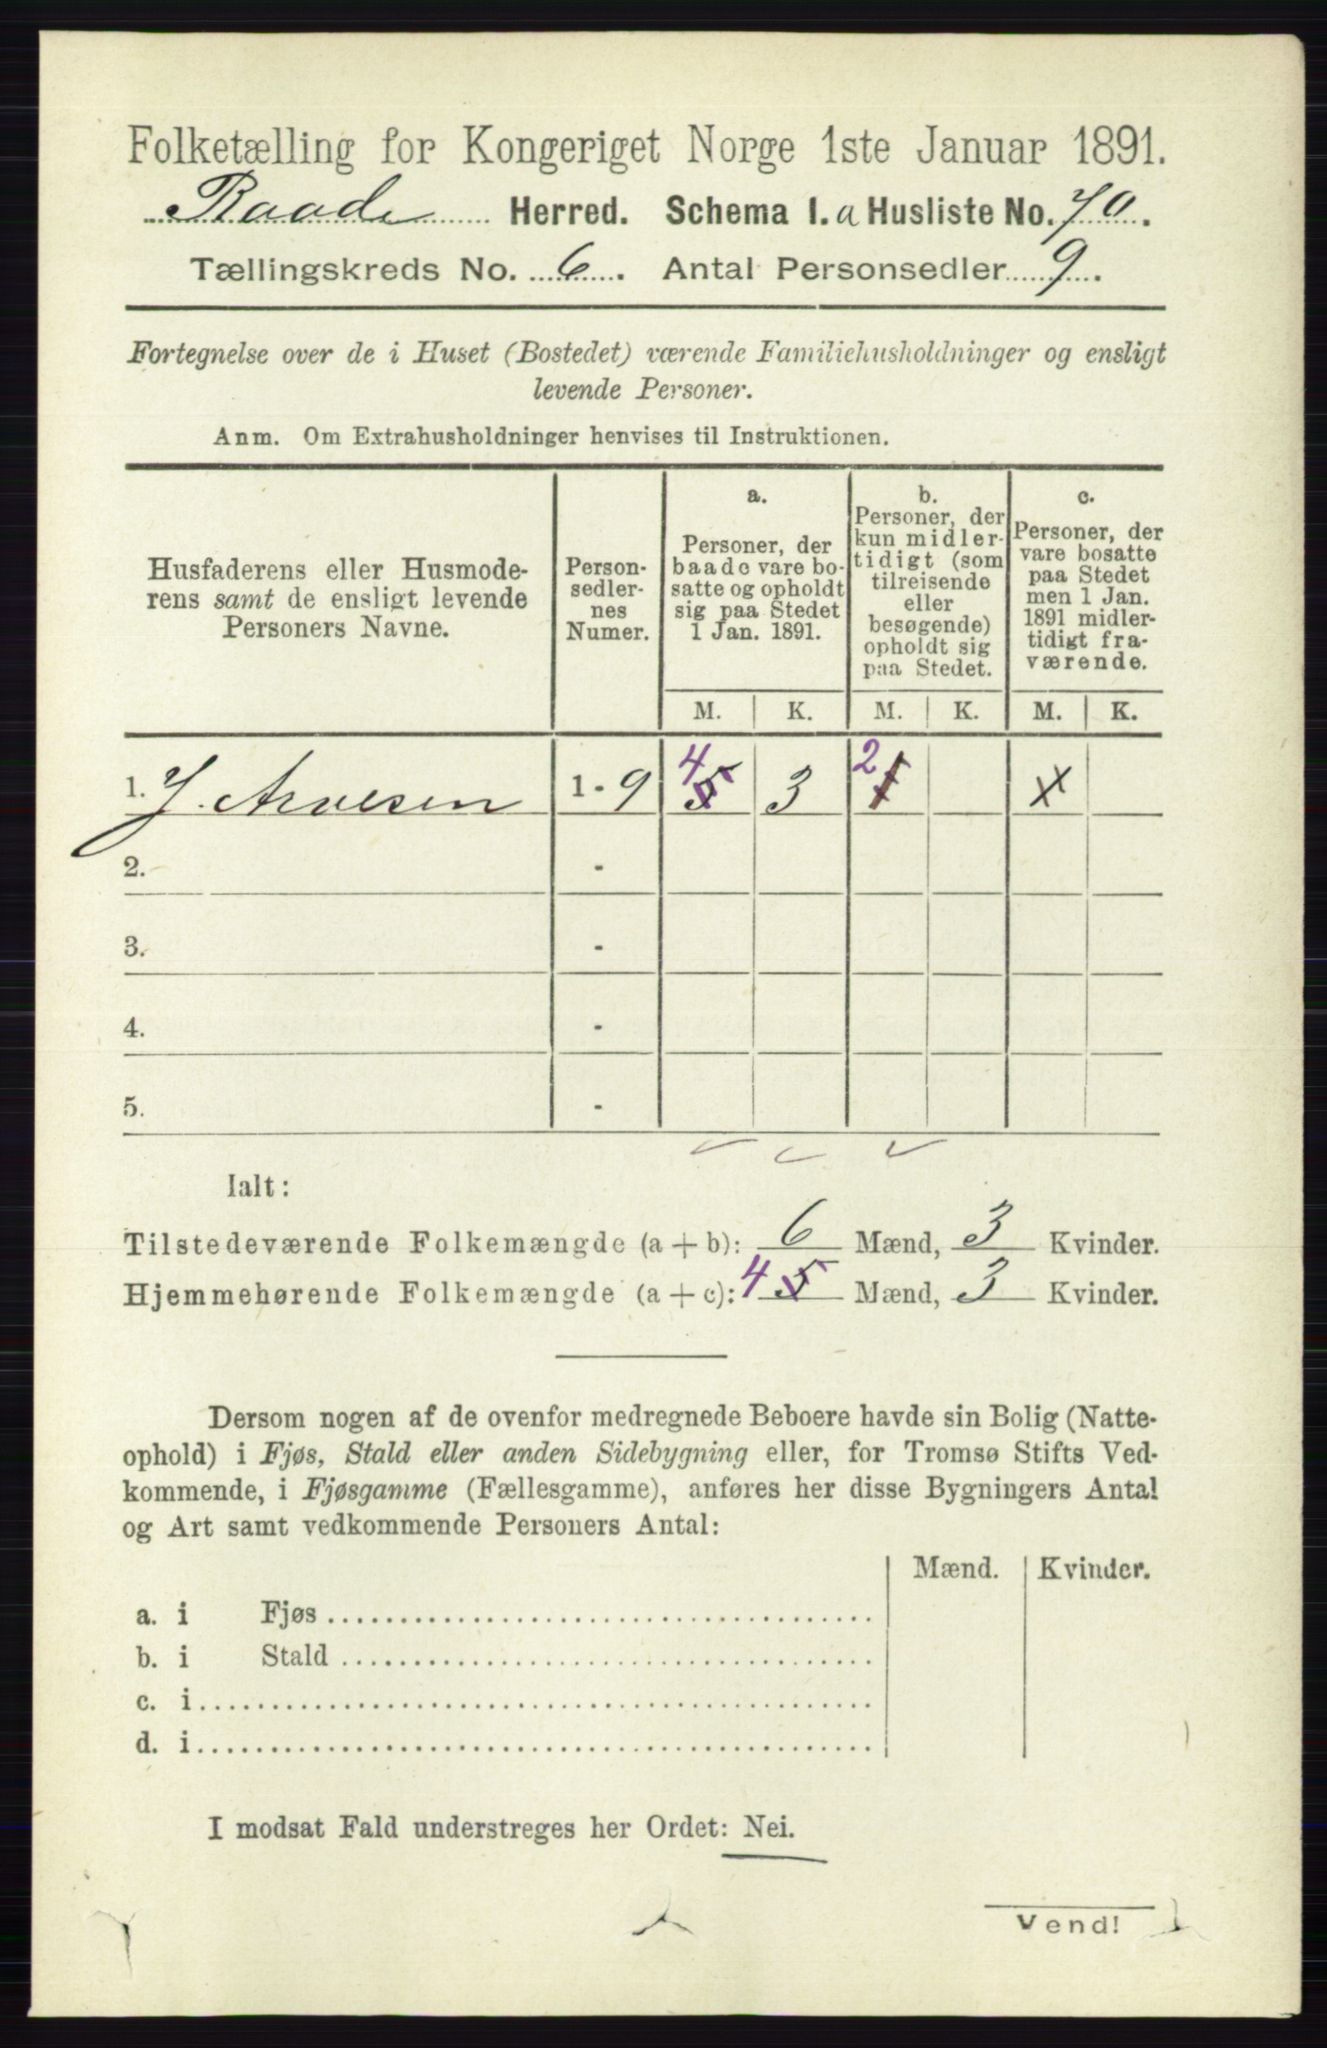 Folketælling for Kongeriget Norge 1ste Januar 1891.
Raade Herred. Schema I. a Husliste No. 70.
Tællingskreds No. 6. Antal Personsedler 9.
Fortegnelse over de i Huset (Bostedet) værende Familiehusholdninger og ensligt
levende Personer.
Anm. Om Extrahusholdninger henvises til Instruktionen.
Husfaderens eller Husmode-
rens samt de ensligt levende
Personers Navne.
Person-
sedler-
nes
Numer.
a.
Personer, der
baade vare bo-
satte og opholdt
sig paa Stedet
1 Jan. 1891.
b.
Personer, der
kun midler-
tidigt (som
tilreisende
eller
besøgende)
opholdt sig
paa Stedet.
c.
Personer, der
vare bosatte
paa Stedet
men 1 Jan.
1891 midler-
tidigt fra-
værende.
M. K. M. K. M. K.
1. J. Arvesen 1 - 9 4 5 3 2 1 x
2. -
3. -
4. -
5. -
Ialt:
Tilstedeværende Folkemængde (a + b): 6 Mænd, 3 Kvinder.
Hjemmehørende Folkemængde (a + c): 4 5 Mænd, 3 Kvinder.
Dersom nogen af de ovenfor medregnede Beboere havde sin Bolig (Natte-
ophold) i Fjøs, Stald eller anden Sidebygning eller, for Tromsø Stifts Ved-
kommende, i Fjøsgamme (Fællesgamme), anføres her disse Bygningers Antal
og Art samt vedkommende Personers Antal:
Mænd. Kvinder.
a. i Fjøs
b. i Stald
c. i
d. i
I modsat Fald understreges her Ordet: Nei.
Vend!